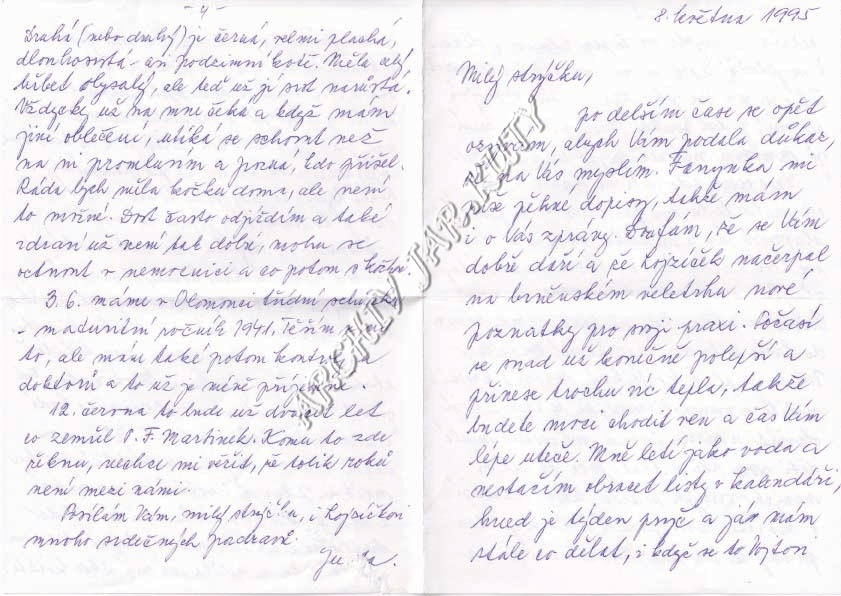 - 4 -
Druhá (nebo druhý) je černá, velmi plachá,
dlouhosrstá - asi podzimní kotě. Měla celý
hřbet olysalý, ale teď už jí srst narůstá.
Vždycky už na mne čeká a když mám
jiné oblečení, utíká se schovat než
na ni promluvím a pozná, kdo přišel.
Ráda bych měla kočku doma, ale není
to možné. Dost často odjíždím a také
zdraví už není tak dobré, mohu se
octnout v nemocnici a co potom s kočkou.
3.6. máme v Olomouci třídní schůzku
- maturitní ročník 1941. Těším se na
to, ale mám také potom kontrolu
doktorů a to už je méně příjemné.
12. června to bude už dvacet let
co zemřel P. F. Martinek. Komu to zde
řeknu, nechce mi věřit, že tolik roků
není mezi námi.
Posílám Vám, milý strýčku, i Lojzíčkovi
mnoho srdečných pozdravů.
8. května 1995
Milý strýčku,
po delším čase se opět
ozývám, abych Vám podala důkaz,
na Vás myslím. Fanynka mi
píše pěkné dopisy, takže mám
i o Vás zprávy. Doufám, že se Vám
dobře daří a že Lojzíček načerpal
na brněnském veletrhu nové
poznatky pro svoji praxi. Počasí
se snad už konečně polepší a
přinese trochu víc tepla, takže
budete moci chodit ven a čas Vám
lépe uteče. Mně letí jako voda a
nestačím obracet listy v kalendáři,
hned je týden pryč a já mám
stále co dělat, i když se to Vojtovi
ARCHIV JAR. KUTY